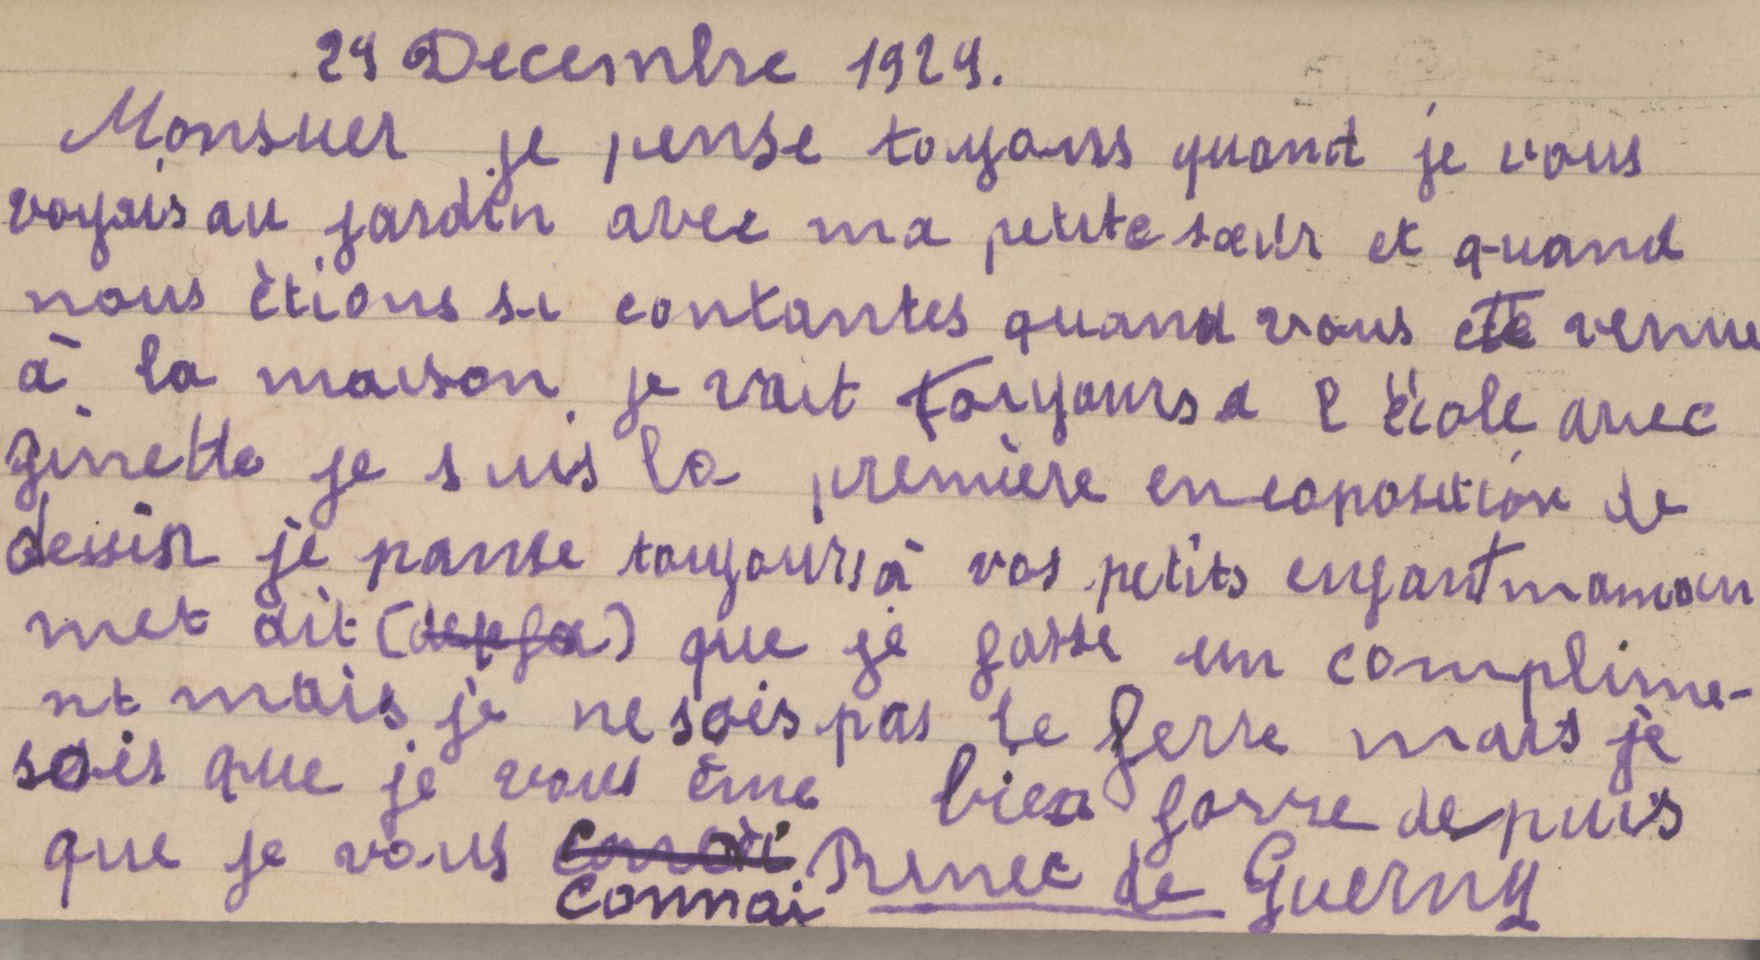 29 Decembre 1929.
Monsuer je pense toujours quand je vous
voyais au jardin avec ma petite sœur et quand
nous ètions si contantes quand vous ete venue
à la maison je vait toujours a l'école avec
ginette je suis la première en coposition de
dessin je panse toujours à vos petits enfant maman
met dit ( ) que je fasse un complime-
nt mais je ne sois pas le ferre mais je
sois que je vous ême bien forre depuis
que je vous
connai Renee de Guerny